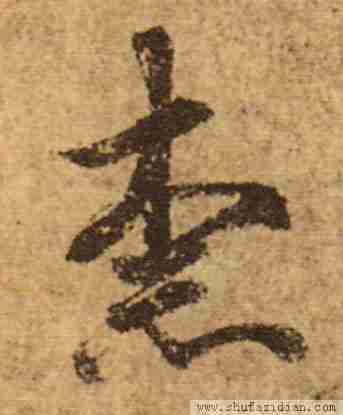 柰
www.shufazidian.com